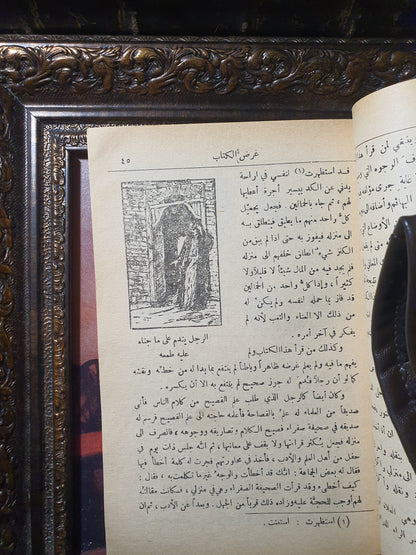 ٤٥
غرض الكتاب
قد استظهرت (١) لنفسي في اراحة
بدني عن الكد بيسير أجرة أعطيها
لهم ، ثم جاء بالحمالين فجعل يحمّل
كل واحد منهم ما يطيق فينطلق به
الى منزله فيفوز به حتى اذا لم يبق من
الكنز شيء انطلق خلفهم الى منزله
فلم يجد فيه من المال شيئاً لا قليلا ولا
كثيراً ، واذا كل واحد من الحمالين
قد فاز بما حمله لنفسه ولم يكن له
من ذلك الا العناء والتعب لأنه لم
يفكر في آخر أمره .
الرجل يتندم على ما جناه
عليه طمعه
وكذلك من قرأ هذا الكتاب ولم
يفهم ما فيه ولم يعلم غرضه ظاهراً وباطناً لم ينتفع بما يبدو له من خطه ونقشه
كما لو أن رجلاً قدم له جوز صحيح لم ينتفع به الا أن يكسره .
وكان أيضاً كالرجل الذي طلب علم الفصيح من كلام الناس فأتى
صديقاً من العلماء له علم بالفصاحة فأعلمه حاجته الى علم الفصيح فرسم له
صديقه في صحيفة صفراء فصيح الكلام وتصاريفه ووجوهه ، فانصرف الى
منزله فجعل يُكثر قراءتها ولا يقف على معانيها، ثم انه جلس ذات يوم في
محفل من أهل العلم والأدب ، فأخذ في محاورتهم فجرت له كلمة أخطأ فيها
فقال له بعض الجماعة : انك قد أخطأت والوجه غير ما تكلمت به ، فقال :
كيف أخطىء وقد قرأت الصحيفة الصفراء وهي في منزلي ، فكانت مقالته
لهم أوجب للحجة عليه وزاده ذلك قرباً من الجهل . وبعداً من الأدب ، ثم ان
(١) استظهرت : استعنت .